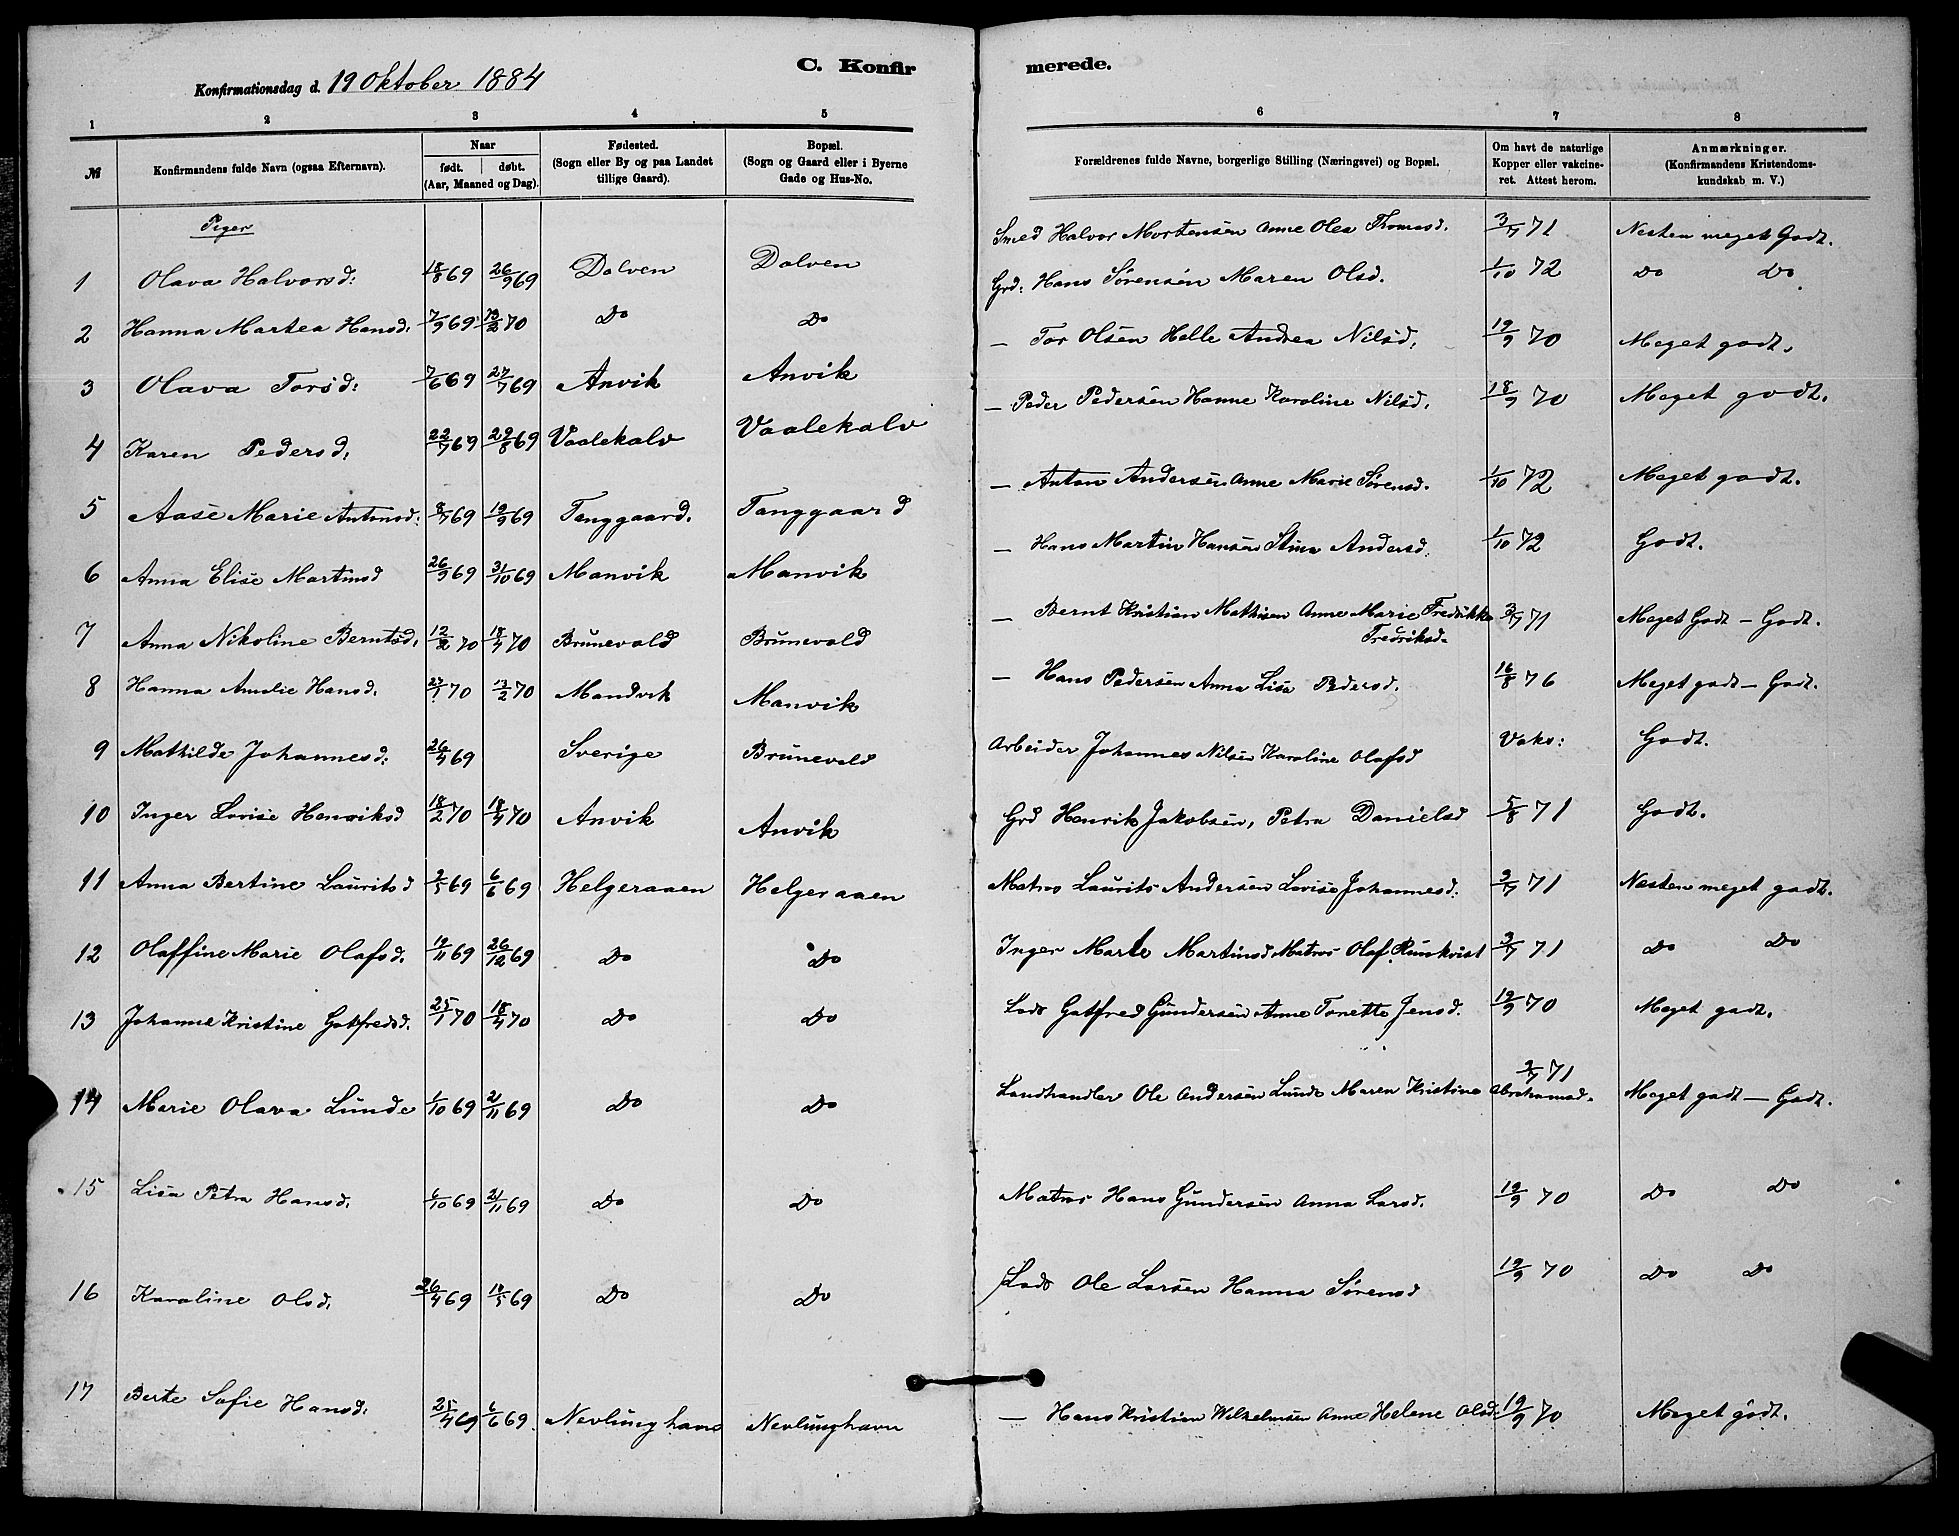 C. Konfirmerede.
Konfirmationsdag d. 19 Oktober 1884
1 2 3 4 5 6 7 8
№ Konfirmandens fulde Navn (ogsaa Efternavn). Naar født. døbt. (Aar, Maaned og Dag). Fødested. (Sogn eller By og paa Landet tillige Gaard). Bopæl. (Sogn og Gaard eller i Byerne Gade og Hus-No. Forældrenes fulde Navne, borgerlige Stilling (Næringsvei) og Bopæl. Om havt de naturlige Kopper eller vakcineret. Attest herom. Anmærkninger. (Konfirmandens Kristendomskundskab m. V.)
Piger
1 Olava Halvorsd: 18/8 69 26/9 69 Dolven Dolven Smed Halvor Mortensen Anne Olea Thomasd. 3/7 71 Nesten meget Godt.
2 Hanna Martea Hansd. 7/9 69 13/2 70 Do Do Grd: Hans Sørensen Maren Olsd. 1/10 72 Do Do
3 Olava Torsd: 7/6 69 27/7 69 Anvik Anvik — Tor Olsen Helle Andrea Nilsd. 19/9 70 Meget godt.
4 Karen Pedersd. 22/7 69 29/8 69 Vaalekalv Vaalekalv — Peder Pedersen Hanne Karoline Nilsd. 18/9 70 Meget godt.
5 Aase Marie Antonsd. 8/7 69 19/9 69 Tanggaard. Tanggaard — Anton Andersen Anne Marie Sørensd. 1/10 72 Meget godt.
6 Anna Elise Martinsd 26/9 69 31/10 69 Manvik Manvik — Hans Martin Hansen Stina Andersd. 1/10 72 Godt.
7 Anna Nikoline Berntsd. 12/2 70 18/4 70 Brunevald Brunevald — Bernt Kristian Mathisen Anne Marie Fredrikke Fredriksd. 3/7 71 Meget Godt — Godt.
8 Hanna Amalie Hansd. 27/1 70 13/2 70 Mandvik Manvik — Hans Pedersen Anna Lisa Pedersd. 16/8 76 Meget godt — Godt.
9 Mathilde Johannesd. 26/4 69 Sverige Brunevald Arbeider Johannes Nilsen Karoline Olafsd Vaks: Godt.
10 Inger Lovise Henriksd 18/2 70 18/4 70 Anvik Anvik Grd Henrik Jakobsen, Petra Danielsd 5/8 71 Godt.
11 Anna Bertine Lauritsd 2/5 69 6/6 69 Helgeraaen Helgeraaen Matros Laurits Andersen Lovise Johannesd. 3/7 71 Næsten meget godt.
12 Olaffine Marie Olafsd. 19/11 69 26/12 69 Do Do Inger Marte Martinsd Matros Olaf Runkvist 3/7 71 Do Do
13 Johanne Kristine Gotfredsd. 25/1 70 18/4 70 Do Do Lods Gotfred Gundersen Anne Tonette Jensd. 19/9 70 Meget godt.
14 Marie Olava Lunde 1/10 69 21/11 69 Do Do Landhandler Ole Andersen Lunde Maren Kristine Abrahamsd. 3/7 71 Meget godt — Godt.
15 Lisa Petra Hansd. 6/10 69 21/11 69 Do Do Matros Hans Gundersen Anna Larsd. 19/9 70 Do Do
16 Karoline Olsd. 26/4 69 18/5 69 Do Do Lods Ole Larsen Hanna Sørensd 19/9 70 Do Do
17 Berte Sofie Hansd. 25/4 69 6/6 69. Nevlunghavn Nevlunghavn — Hans Kristian Wilhelmsen Anne Helene Olsd. 19/9 70 Meget godt.